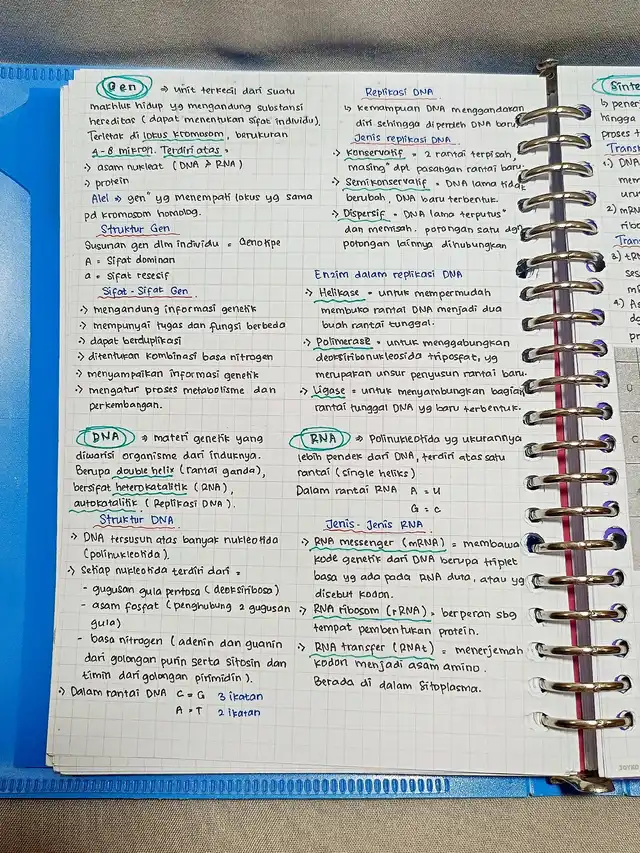 Gen → unit terkecil dari suatu
makhluk hidup yg mengandung substansi
hereditas (dapat menentukan sifat individu).
Terletak di lokus kromosom, berukuran
4-8 mikron. Terdiri atas =
> asam nukleat (DNA & RNA)
> protein
Alel → gen" yg menempati lokus yg sama
pd kromosom homolog.
Struktur Gen
Susunan gen dlm individu = Genotipe
A = Sifat dominan
a = sifat resesif
Sifat-Sifat Gen
> mengandung informasi genetik
> mempunyai tugas dan fungsi berbeda
> dapat berduplikasi
> ditentukan kombinasi basa nitrogen
> menyampaikan informasi genetik
> mengatur proses metabolisme dan
perkembangan.
DNA → materi genetik yang
diwarisi organisme dari induknya.
Berupa double helix (rantai ganda),
bersifat heterokatalitik (RNA),
autokatalitik (Replikasi DNA).
Struktur DNA
> DNA tersusun atas banyak nukleotida
(polinukleotida).
> Setiap nukleotida terdiri dari =
- gugusan gula pentosa (deoksiribosa)
- asam fosfat (penghubung 2 gugusan
gula)
- basa nitrogen (adenin dan guanin
dari golongan purin serta sitosin dan
timin dari golongan pirimidin).
> Dalam rantai DNA C = G 3 ikatan
A = T 2 ikatan
Replikasi DNA
↳ kemampuan DNA menggandakan
diri sehingga diperoleh DNA baru.
Jenis replikasi DNA
> Konservatif = 2 rantai terpisah,
masing" dpt pasangan rantai baru.
> Semikonservatif = DNA lama tidak
berubah, DNA baru terbentuk.
> Dispersif = DNA lama terputus"
dan memisah. potongan satu dgn
potongan lainnya dihubungkan
Enzim dalam replikasi DNA
> Helikase = untuk mempermudah
membuka rantai DNA menjadi dua
buah rantai tunggal.
> Polimerase = untuk menggabungkan
deoksiribonukleosida tripospat, yg
merupakan unsur penyusun rantai baru.
> Ligase = untuk menyambungkan bagian
rantai tunggal DNA yg baru terbentuk.
RNA → Polinukleotida yg ukurannya
lebih pendek dari DNA, terdiri atas satu
rantai (single heliks)
Dalam rantai RNA A = U
G = C
Jenis-Jenis RNA
> RNA messenger (mRNA) = membawa
kode genetik dari DNA berupa triplet
basa yg ada pada RNA duta, atau yg
disebut kodon.
> RNA ribosom (rRNA) = berperan sbg
tempat pembentukan protein.
> RNA transfer (RNAt) = menerjemah
kodon menjadi asam amino.
Berada di dalam sitoplasma.
Sinte
↳ pener
hingga
proses t
Trans
1.) DNA
mem
uru
2) mRN
ribo
Tran
3) tR
ses
4) As
pr
JOYKO